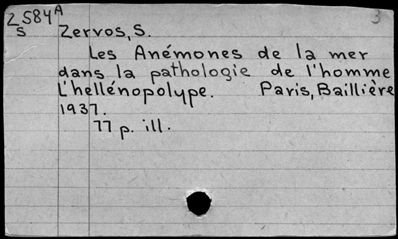 2584A 3
S Zervos, S.
Les Anémones de la mer
dans la pathologie de l'homme
L'hellénopolype. Paris, Baillière
1937.
77 p. ill.